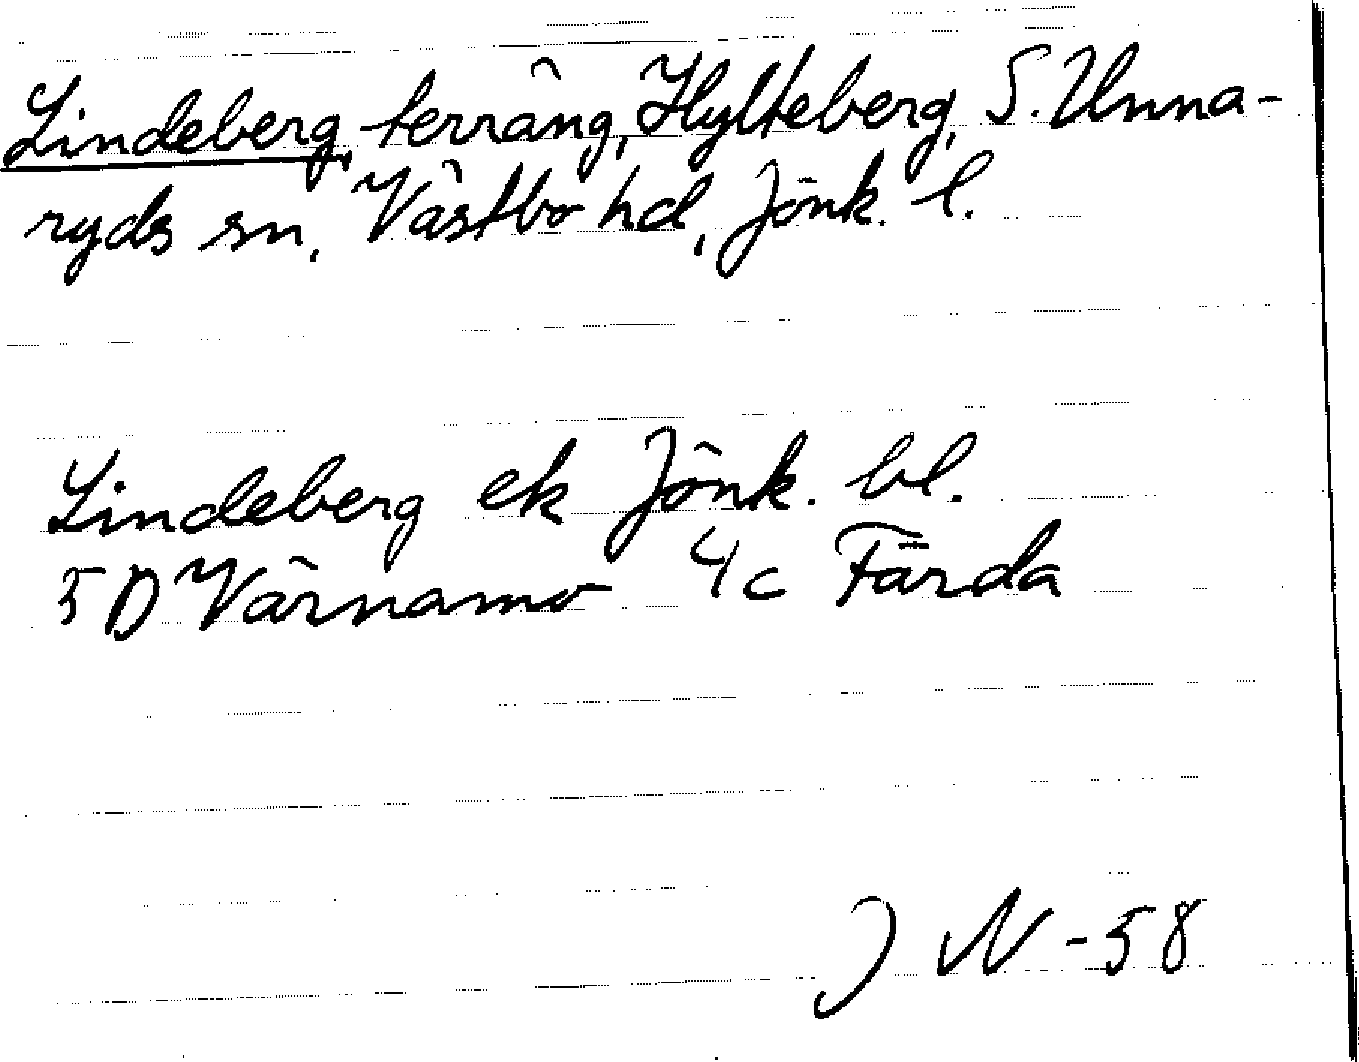 Lindeberg, terräng, Hylteberg, S. Unna-
ryds sn, Västbo hd, Jönk. l.
Lindeberg ek Jönk. bl.
5D Värnamo 4c Färda
J N -58